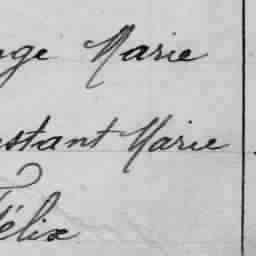 nge Marie
nstant Marie
Félix